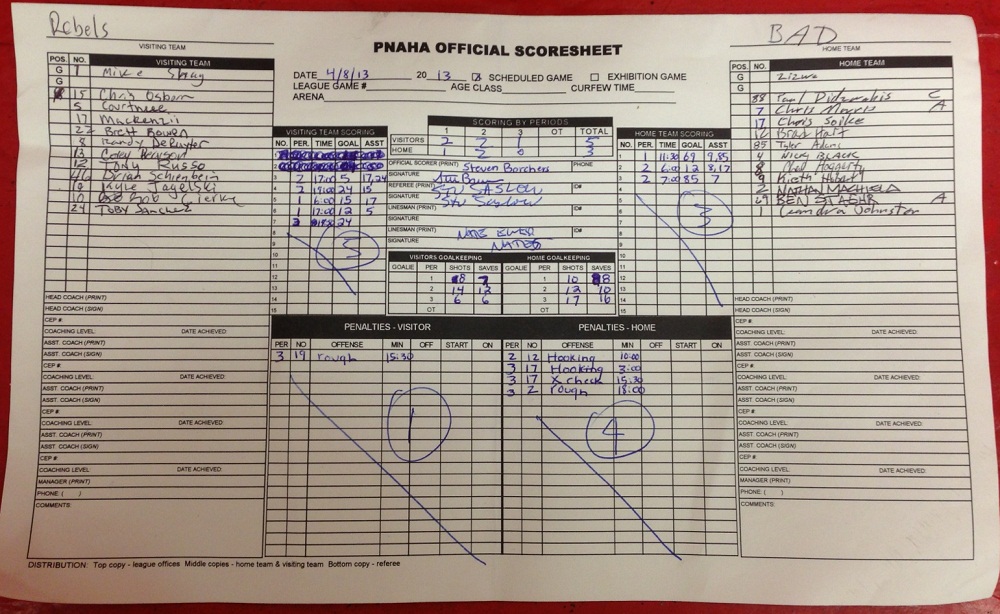 Rebels
VISITING TEAM
PNAHA OFFICIAL SCORESHEET
BAD
HOME TEAM
DATE 4/8/13 20 13 ☒ SCHEDULED GAME ☐ EXHIBITION GAME
LEAGUE GAME# AGE CLASS CURFEW TIME
ARENA
POS. NO. VISITING TEAM
G 1 Mike
G
15 Chris Osborn
5 Courtnee
17 Mackenzii
27 Brett Bowen
8 Randy DeRuyter
13 Corey
12 Tony Russo
Brian Schienbein
19 Kyle Jagelski
10 Rob Cierky
24 Toby Sanchez
HEAD COACH (PRINT)
HEAD COACH (SIGN)
CEP #
COACHING LEVEL: DATE ACHIEVED:
ASST. COACH (PRINT)
ASST. COACH (SIGN)
CEP #
COACHING LEVEL: DATE ACHIEVED:
ASST. COACH (PRINT)
ASST. COACH (SIGN)
CEP #
COACHING LEVEL: DATE ACHIEVED:
ASST. COACH (PRINT)
ASST. COACH (SIGN)
CEP #
COACHING LEVEL: DATE ACHIEVED:
MANAGER (PRINT)
PHONE ( )
COMMENTS:
VISITING TEAM SCORING
NO. PER. TIME GOAL ASST
1
2
3 2 17:00 5 17,24
4 2 19:00 24 15
5 1 6:00 15 17
6 1 17:00 12 5
7 3 24
8
9
10
11
12
13
14
15
5
SCORING BY PERIODS
1 2 3 OT TOTAL
VISITORS 2 2 1 5
HOME 1 2 0 3
OFFICIAL SCORER (PRINT) Steven Borchers PHONE
SIGNATURE
REFEREE (PRINT) STU SASLOW ID#
SIGNATURE Stu Saslow
LINESMAN (PRINT) ID#
SIGNATURE
LINESMAN (PRINT) NATE EWER ID#
SIGNATURE
VISITORS GOALKEEPING HOME GOALKEEPING
GOALIE PER SHOTS SAVES GOALIE PER SHOTS SAVES
1 8 7 1 10 8
2 14 12 2 12 10
3 6 6 3 17 16
OT OT
HOME TEAM SCORING
NO. PER. TIME GOAL ASST
1 1 11:30 69 9,85
2 2 6:00 12 8,17
3 2 7:00 85 7
4
5
6
7
8
9
10
11
12
13
14
15
3
POS. NO. HOME TEAM
G
G
88 Paul C
7 Chris Morris A
17 Chris Soike
12 Brad Hart
85 Tyler Adami
4 Nick BLACK
8 Hogarty
9 Kieth Hobart
2 NATHAN MACHIELA
69 BEN STAOHR A
1 Johnston
HEAD COACH (PRINT)
HEAD COACH (SIGN)
CEP #
COACHING LEVEL: DATE ACHIEVED:
ASST. COACH (PRINT)
ASST. COACH (SIGN)
CEP #
COACHING LEVEL: DATE ACHIEVED:
ASST. COACH (PRINT)
ASST. COACH (SIGN)
CEP #
COACHING LEVEL: DATE ACHIEVED:
ASST. COACH (PRINT)
ASST. COACH (SIGN)
CEP #
COACHING LEVEL: DATE ACHIEVED:
MANAGER (PRINT)
PHONE ( )
COMMENTS:
PENALTIES - VISITOR
PER NO OFFENSE MIN OFF START ON
3 19 rough 15:30
1
PENALTIES - HOME
PER NO OFFENSE MIN OFF START ON
2 12 Hooking 10:00
3 17 Hooking 3:00
3 17 X check 15:30
3 2 rough 18:00
4
DISTRIBUTION: Top copy - league offices Middle copies - home team & visiting team Bottom copy - referee